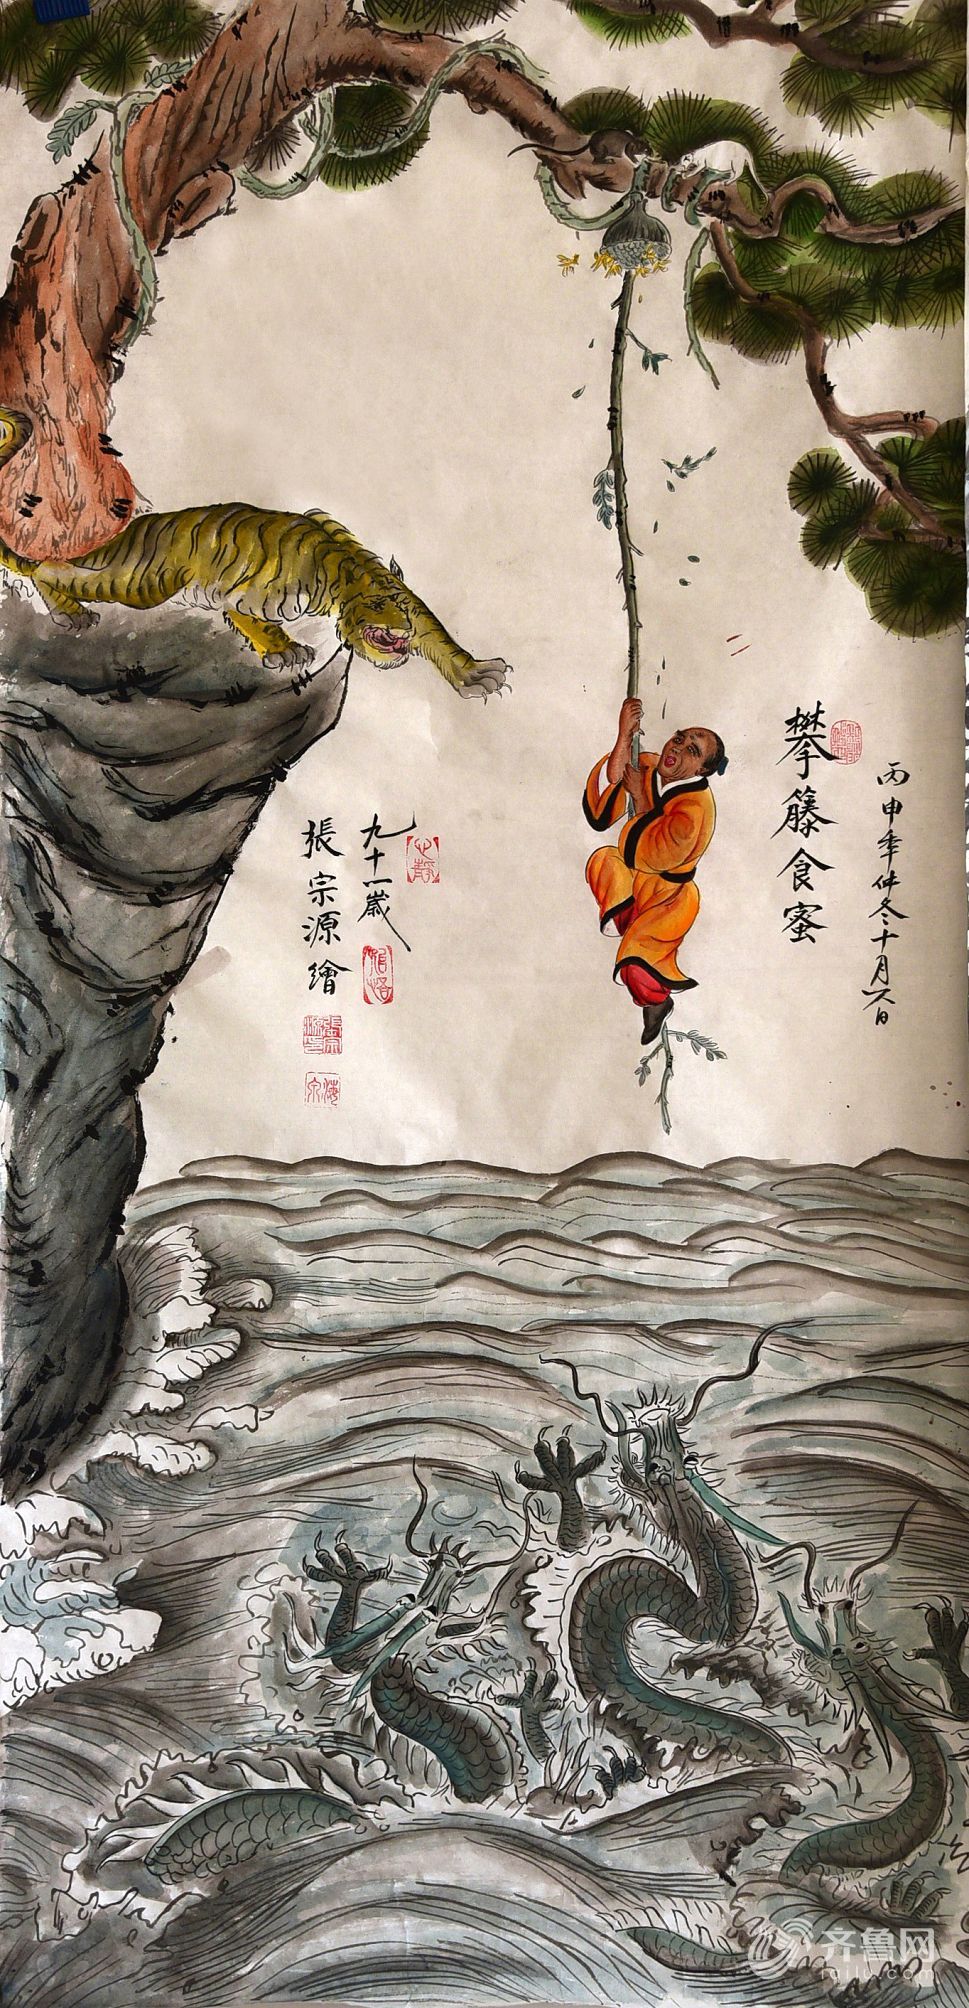 攀籐食蜜
丙申年仲冬十月八日
九十一歲
張宗源繪
心靜
齐鲁网
qilu.com